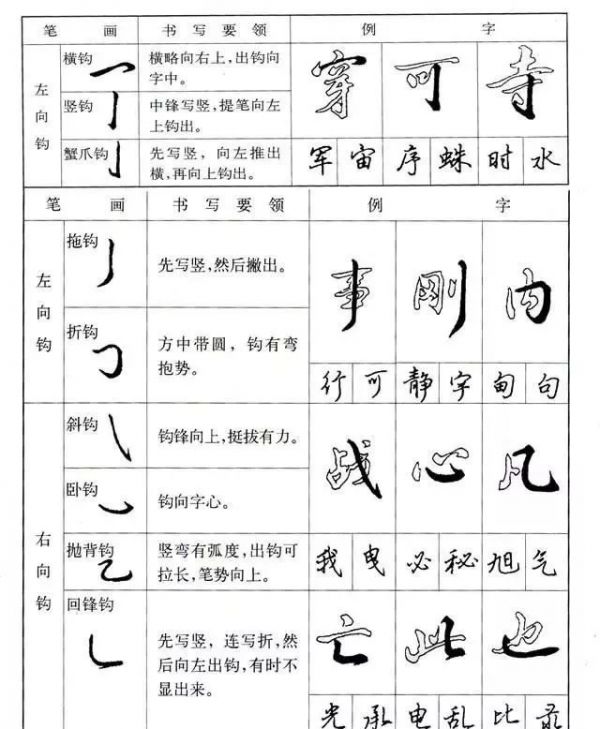 笔 画 书写要领 例 字
左向钩
横钩
横略向右上，出钩向
字中。
竖钩
中锋写竖，提笔向左
上钩出。
蟹爪钩
先写竖，向左推出
横，再向上钩出。
穿 可 寺
军 宙 序 蛛 时 水
笔 画 书写要领 例 字
左向钩
拖钩
先写竖，然后撇出。
折钩
方中带圆，钩有弯
抱势。
事 刚 内
行 可 静 字 甸 句
右向钩
斜钩
钩锋向上，挺拔有力。
卧钩
钩向字心。
战 心 凡
抛背钩
竖弯有弧度，出钩可
拉长，笔势向上。
我 曳 必 秘 旭 气
回锋钩
先写竖，连写折，然
后向左出钩，有时不
显出来。
亡 此 也
光 承 电 乱 比 最